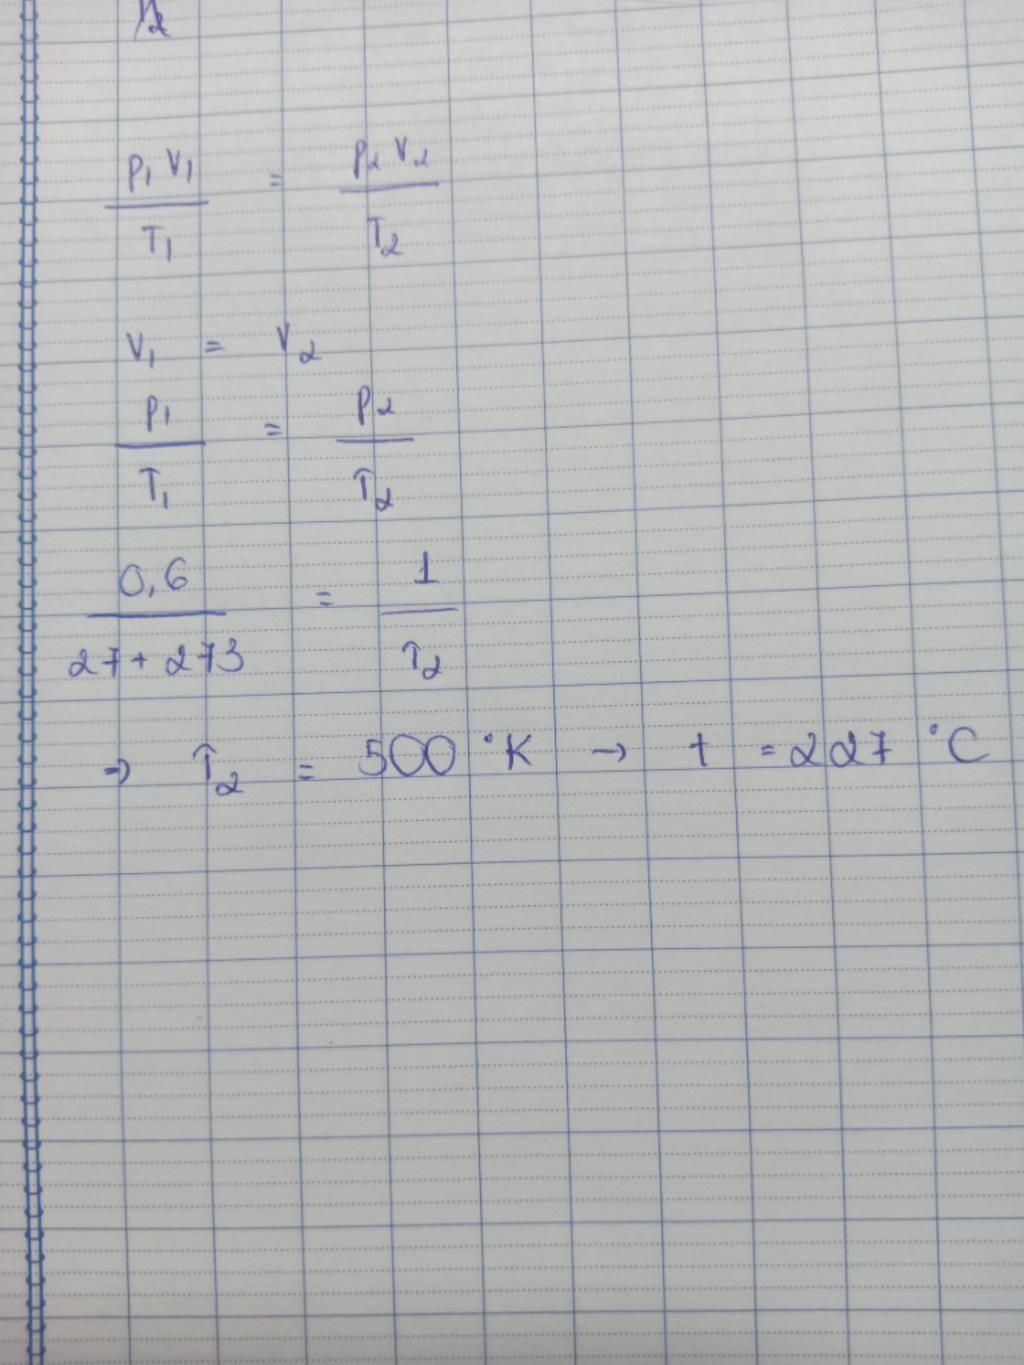 p₁ V₁ / T₁ = p₂ V₂ / T₂
V₁ = V₂
p₁ / T₁ = p₂ / T₂
0,6 / 27 + 273 = 1 / T₂
⇒ T₂ = 500 °K → t = 227 °C